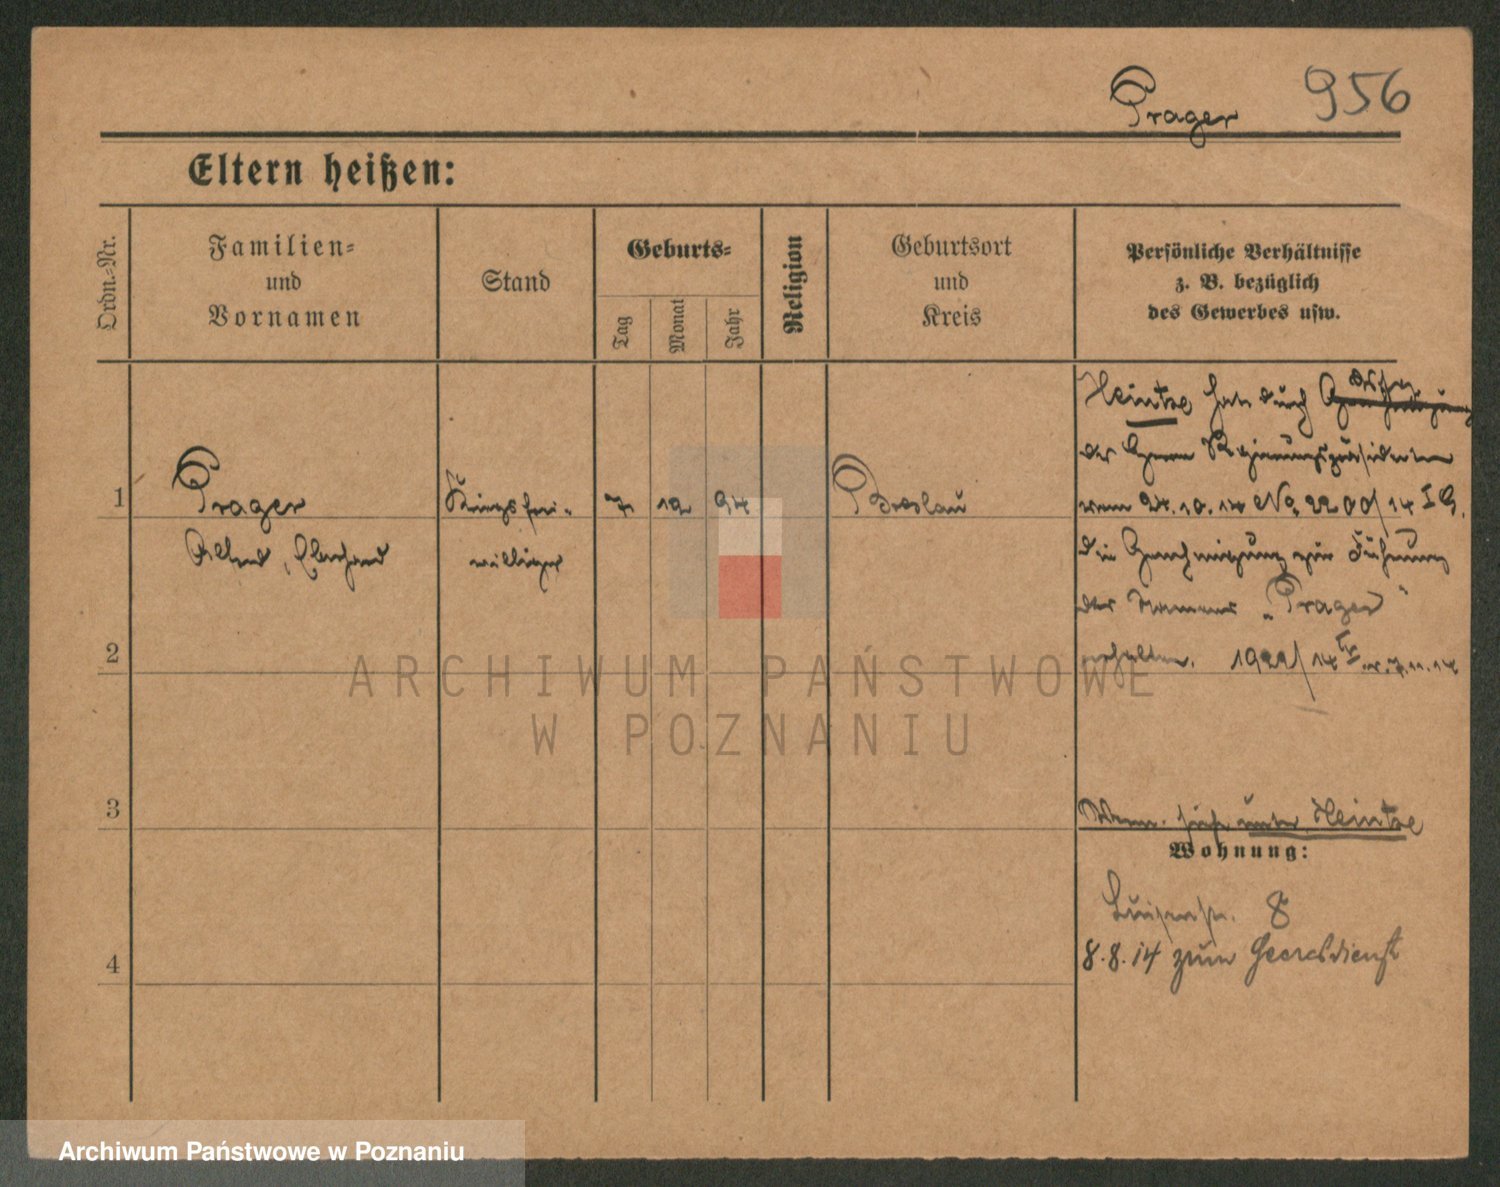 Prager 956
Eltern heißen:
Ordn.-Nr.
Familien-
und
Vornamen
Stand
Geburts-
Tag
Monat
Jahr
Religion
Geburtsort
und
Kreis
Persönliche Verhältnisse
z. B. bezüglich
des Gewerbes usw.
1
Prager
Alfred, Eberhard
Kriegsfrei-
williger
7 12 94
Breslau
Heintze hat durch
des Herrn Regierungspräsidenten
vom 24.10.14 No 2200/14 I G.
die Genehmigung zur Führung
des Namens „Prager"
erhalten. 1922/14 v. 7.11.14
2
3
siehe unter Heintze
Wohnung:
Luisenstr. 8
8.8.14 zum Heeresdienst
4
ARCHIWUM PAŃSTWOWE
W POZNANIU
Archiwum Państwowe w Poznaniu